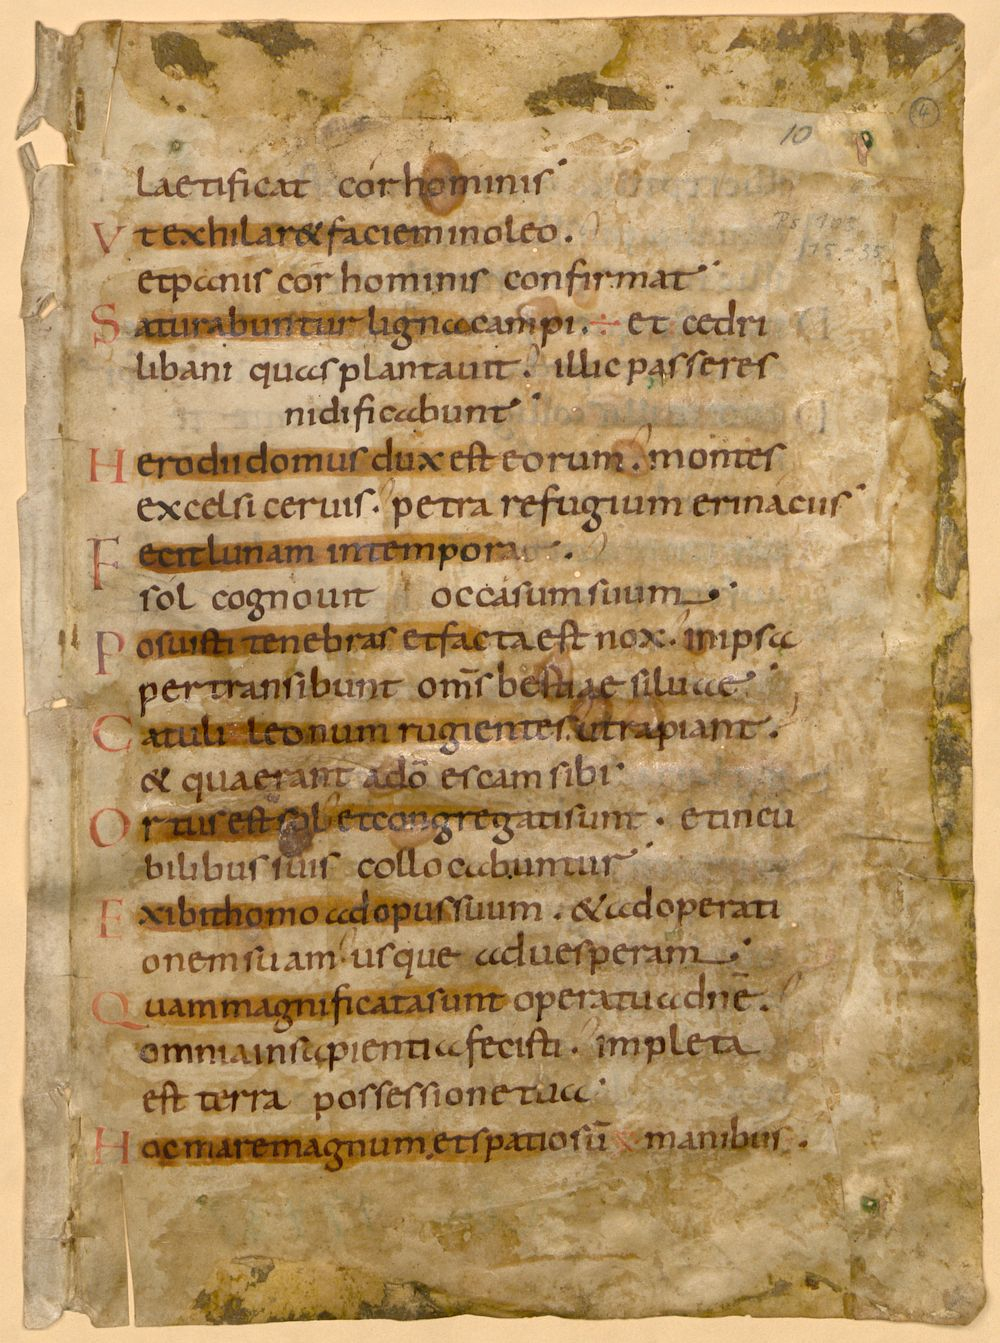 4
10
Ps 103
15-35
laetificat cor hominis
Ut exhilar& faciem in oleo.
et panis cor hominis confirmat
Saturabuntur ligna campi. ÷ et cedri
libani quas plantauit. illic passeres
nidificabunt
Herodii domus dux est eorum. montes
excelsi ceruis. petra refugium erinaciis
Fecit lunam in tempora.
sol cognouit occasum suum
Posuisti tenebras et facta est nox. in ipsa
pertransibunt om̄s bestiae siluae
Catuli leonum rugientes. ut rapiant.
& quaerant a dō escam sibi
Ortus est sol et congregati sunt. et in cu
bilibus suis collocabuntur
Exibit homo ad opus suum. & ad operati
onem suam usque ad uesperam
Quam magnificata sunt opera tua dn̄e.
omnia in sapientia fecisti. impleta
est terra possessione tua
Hoc mare magnum et spatiosū × manibus.